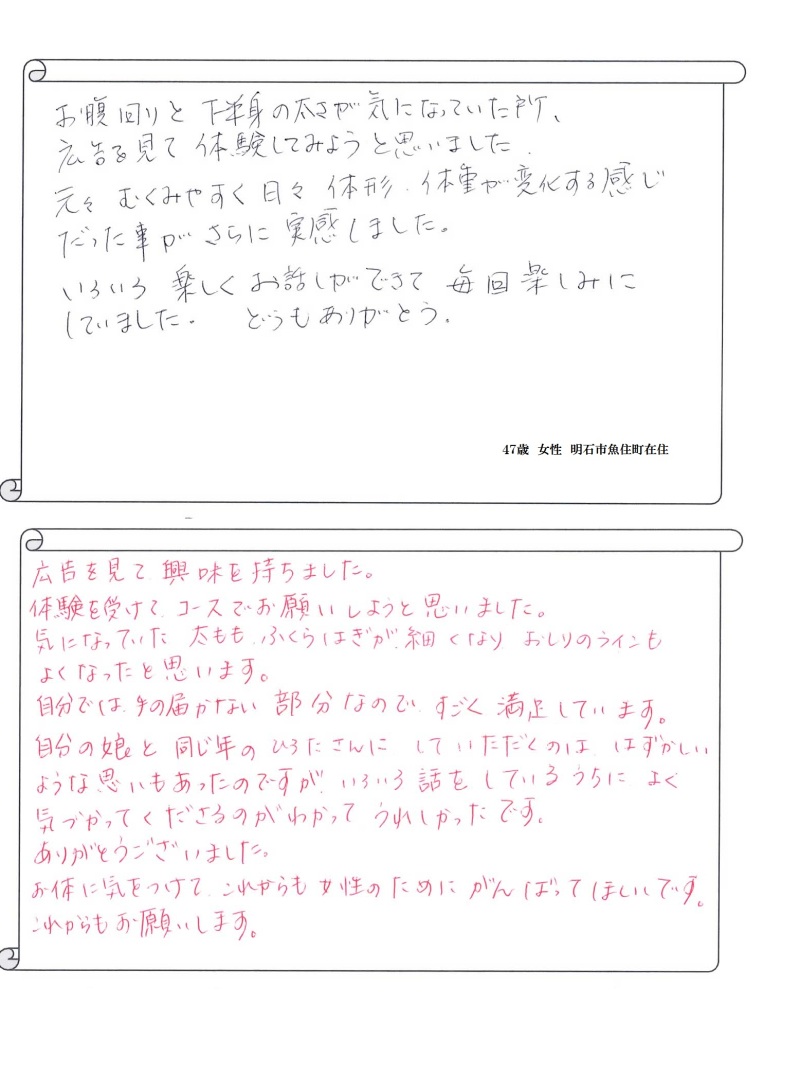 お腹回りと 下半身の太さが気になっていた所、
広告を見て 体験してみようと思いました.
元々 むくみやすく 日々 体形、体重が変化する感じ
だった事が さらに 実感しました。
いろいろ 楽しく お話しができて 毎回楽しみに
していました。 どうもありがとう。
47歳 女性 明石市魚住町在住
広告を見て、興味を持ちました。
体験を受けて、コースでお願いしようと思いました。
気になっていた 太もも、ふくらはぎが、細くなり おしりのラインも
よくなったと思います。
自分では、手の届かない 部分なので、すごく 満足しています。
自分の娘と 同じ年の ひろたさんに していただくのは、はずかしい
ような思いもあったのですが、いろいろ 話を しているうちに よく
気づかってくださるのがわかって うれしかったです。
ありがとうございました。
お体に気をつけて、これからも 女性のために がんばってほしいです。
これからもお願いします。